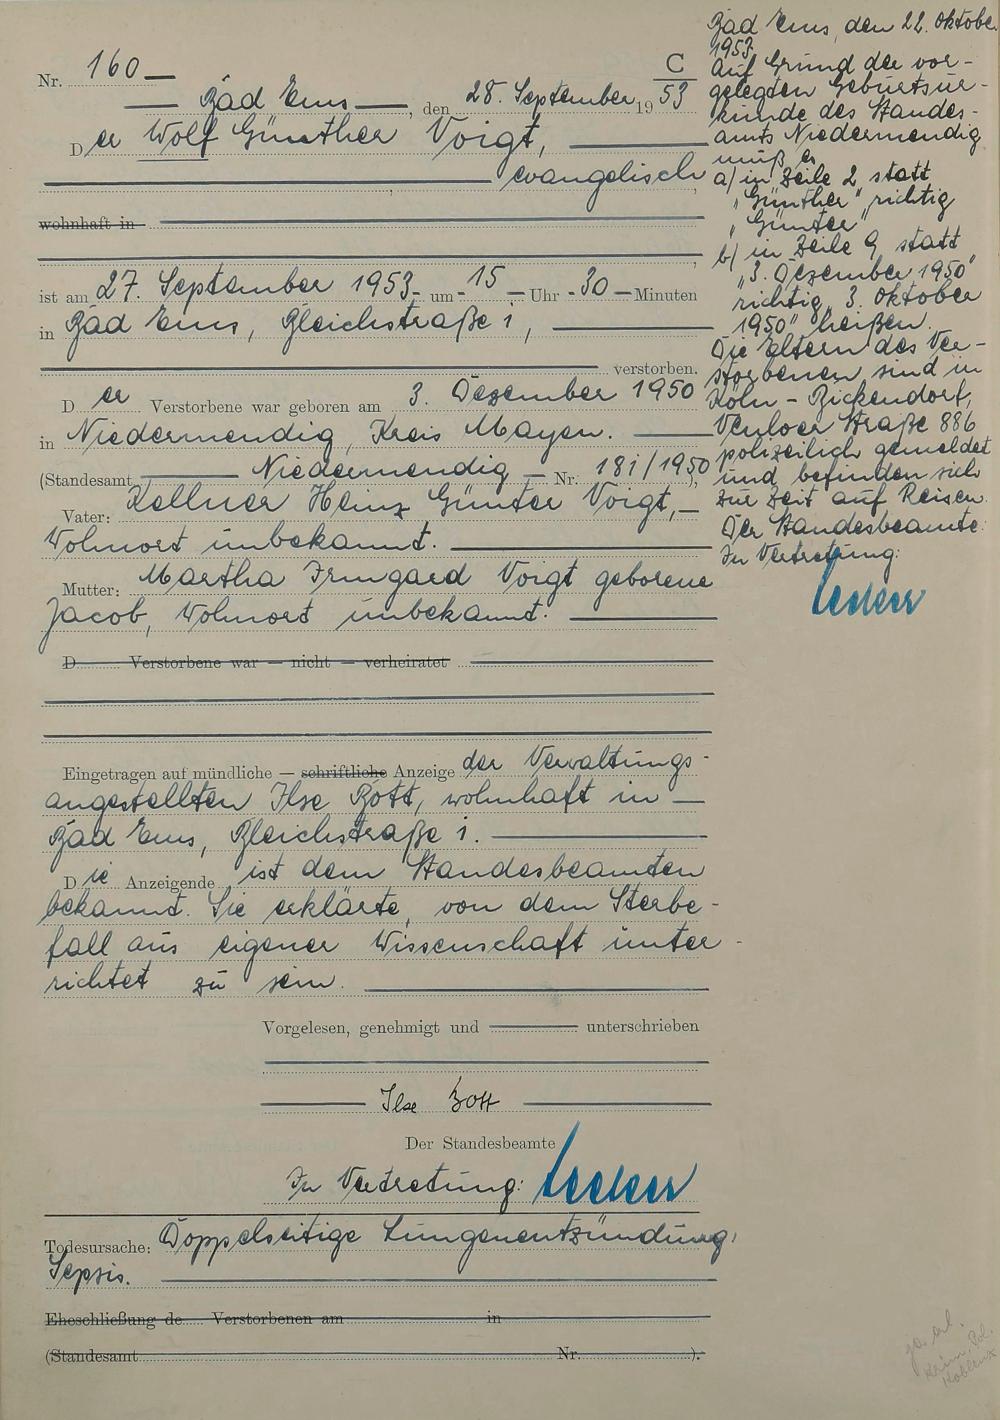 Nr. 160
C
Bad Ems, den 28. September 1953
Der Wolf Günther Voigt,
evangelisch
wohnhaft in
ist am 27. September 1953 um 15 Uhr 30 Minuten
in Bad Ems, Bleichstraße 1,
verstorben.
Der Verstorbene war geboren am 3. Dezember 1950
in Niedermendig, Kreis Mayen.
(Standesamt Niedermendig Nr. 181/1950),
Vater: Kellner Heinz Günter Voigt,
Wohnort unbekannt.
Mutter: Martha Irmgard Voigt geborene
Jacob, Wohnort unbekannt.
D Verstorbene war — nicht — verheiratet
Eingetragen auf mündliche — schriftliche Anzeige der Verwaltungs-
angestellten Ilse Bott, wohnhaft in
Bad Ems, Bleichstraße 1.
Die Anzeigende ist dem Standesbeamten
bekannt. Sie erklärte, von dem Sterbe-
fall aus eigener Wissenschaft unter-
richtet zu sein.
Vorgelesen, genehmigt und unterschrieben
Ilse Bott
Der Standesbeamte
In Vertretung:
Todesursache: Doppelseitige Lungenentzündung,
Sepsis.
Eheschließung de Verstorbenen am in
(Standesamt Nr. ).
Bad Ems, den 22. Oktober
1953
Auf Grund der vor-
gelegten Geburtsur-
kunde des Standes-
amts Niedermendig
muß es
a) in Zeile 2 statt
"Günther" richtig
"Günter"
b) in Zeile 9 statt
"3. Dezember 1950"
richtig "3. Oktober
1950" heißen.
Die Eltern des Ver-
storbenen sind in
Köln-Bickendorf,
Venloer Straße 886
polizeilich gemeldet
und befinden sich
zur Zeit auf Reisen.
Der Standesbeamte:
In Vertretung:
Koblenz